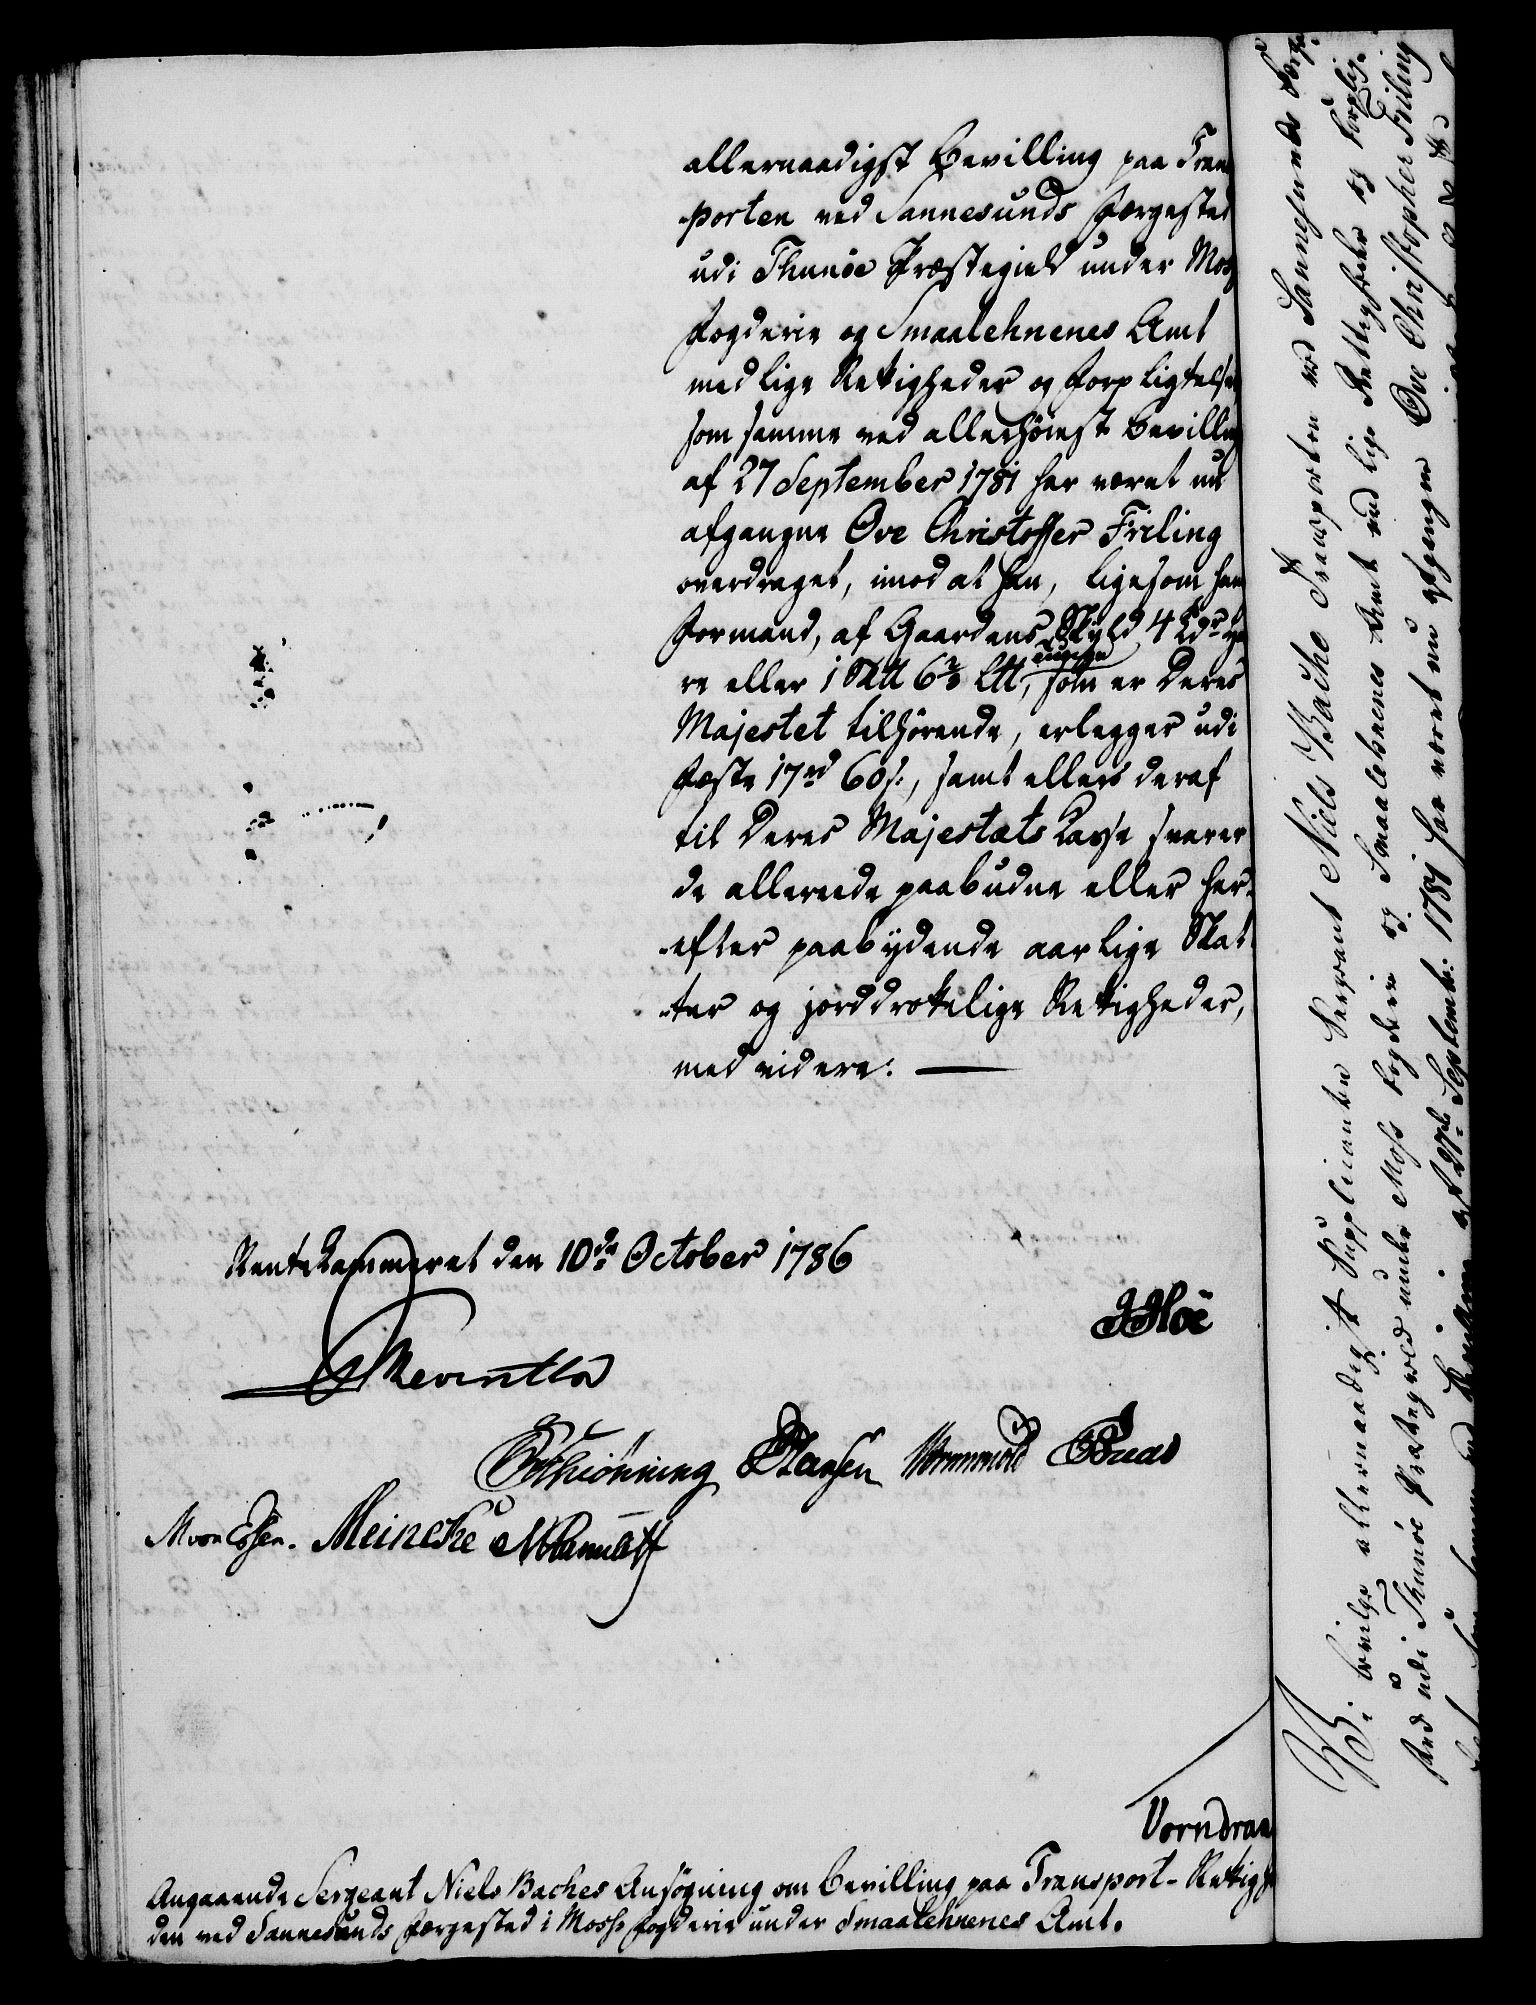 allernaadigst Bevilling paa Trans
-porten ved Sannesunds Færgested
udi Thunøe Præstegield under Moss
Fogderie og Smaalehnenes Amt
med lige Rettigheder og Forpligtelser
som samme ved allerhøiest Bevilling
af 27 September 1781 har været nu
afgangne Ove Christoffer Friling
overdraget, imod at han, ligesom hans
Formand, af Gaardens Skyld 4 Ldr
re eller 1 Skll 6 2/3 Lll, som er Deres
Majestet tilhørende, erlegger udi
Fæste 17 rd 60 s:, samt ellers deraf
til Deres Majestæts Casse svarer
de allereede paabudne eller her-
-efter paabydende aarlige Skat-
-ter og jorddrottelige Rettigheder,
med videre:
Rentekammeret den 10de October 1786
JHöe
Reventlow
Schiönning Hansen Wormskiold
MvonEssen. Meincke
Vorndran
Angaaende Sergeant Niels Baches Ansøgning om Bevilling paa Transport-Rettighe
den ved Sannesunds Færgested i Moss Fogderie under Smaalehnenes Amt.
Vi bevilge allernaadigst Supplicanten Sergeant Niels Bache Transporten ved Sannesunds Færge
sted udi Thunøe Præstegield under Moss Fogderie og Smaalehnenes Amt med lige Rettigheder og Forplig
som samme ved Bevilling af 27de Septemb: 1781 har været nu afgangne Ove Christopher Friling